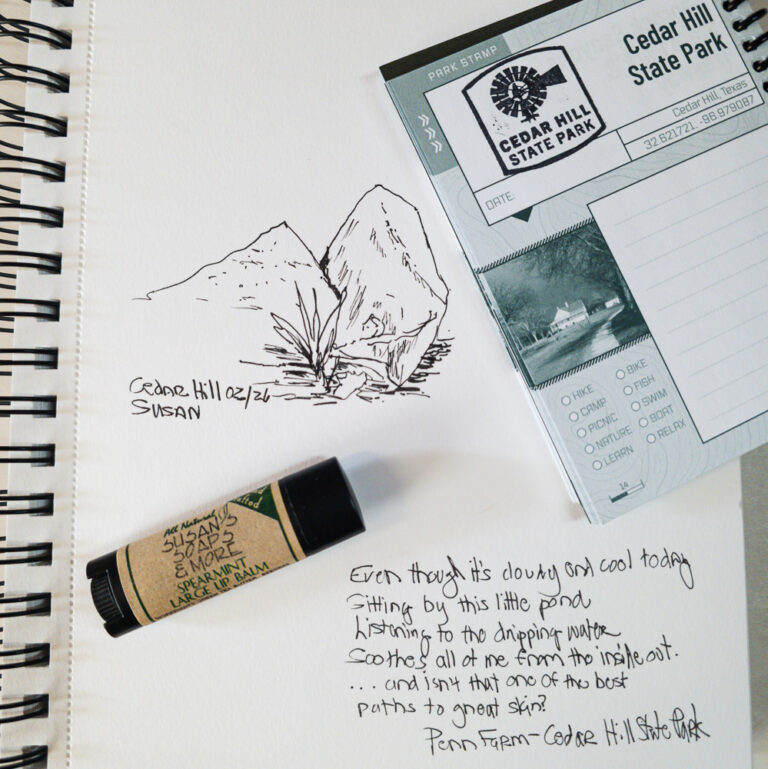 PARK STAMP
Cedar Hill
State Park
CEDAR HILL
STATE PARK
Cedar Hill, Texas
32.621721, -96.979087
DATE:
HIKE
CAMP
PICNIC
NATURE
LEARN
BIKE
FISH
SWIM
BOAT
RELAX
14
Cedar Hill 02/26
SUSAN
All Natural
SUSAN'S
SOAPS
& MORE
SPEARMINT
LARGE LIP BALM
Even though it's cloudy and cool today
Sitting by this little pond
Listening to the dripping water
Soothes all of me from the inside out.
... and isn't that one of the best
paths to great skin?
Penn Farm - Cedar Hill State Park